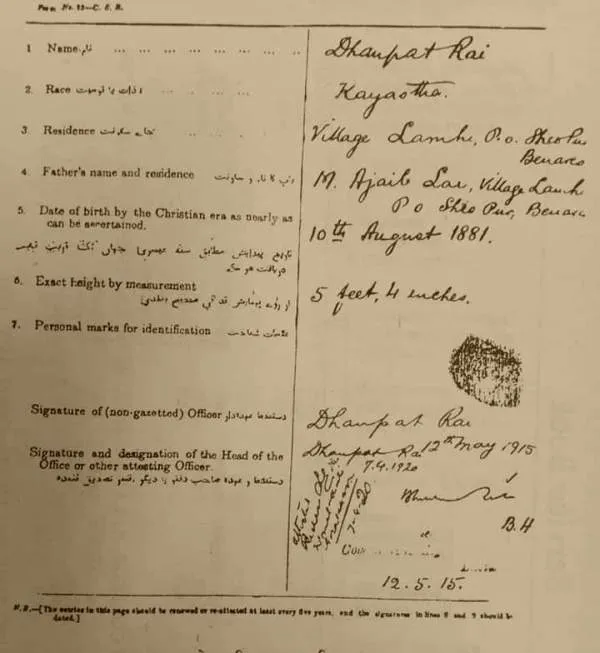 Form No. 13—C. S. R.
1 Name نام ... ... ... ... ... ... Dhanpat Rai
2. Race ذات یا قومیت ... ... ... ... Kayastha.
3. Residence جائے سکونت ... ... ... Village Lamhi, P.O. Sheo Pur
Benares
4. Father's name and residence باپ کا نام و سکونت M. Ajaib Lal, Village Lamhi
P O Sheo Pur, Benares
5. Date of birth by the Christian era as nearly as
can be ascertained. 10th August 1881.
تاریخ پیدایش مطابق سنہ عیسوی جہاں تک قریب قریب
دریافت ہو سکے
6. Exact height by measurement 5 feet, 4 inches.
7. Personal marks for identification
Signature of (non-gazetted) Officer دستخط عہدہ دار Dhanpat Rai
12th May 1915
Signature and designation of the Head of the Dhanpat Rai
Office or other attesting Officer. 7.4.1920
دستخط و عہدہ صاحب دفتر یا دیگر افسر تصدیق کنندہ
7-4-20
B. H
12.5.15.
N.B.—[The entries in this page should be renewed or re-attested at least every five years, and the signatures in lines 8 and 9 should be
dated.]